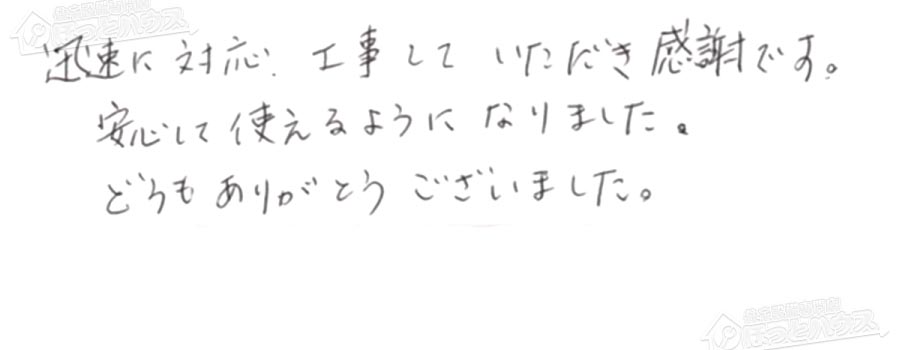 迅速に対応、工事して いただき感謝です。
安心して使えるようになりました。
どうもありがとうございました。
ほっとハウス
ほっとハウス